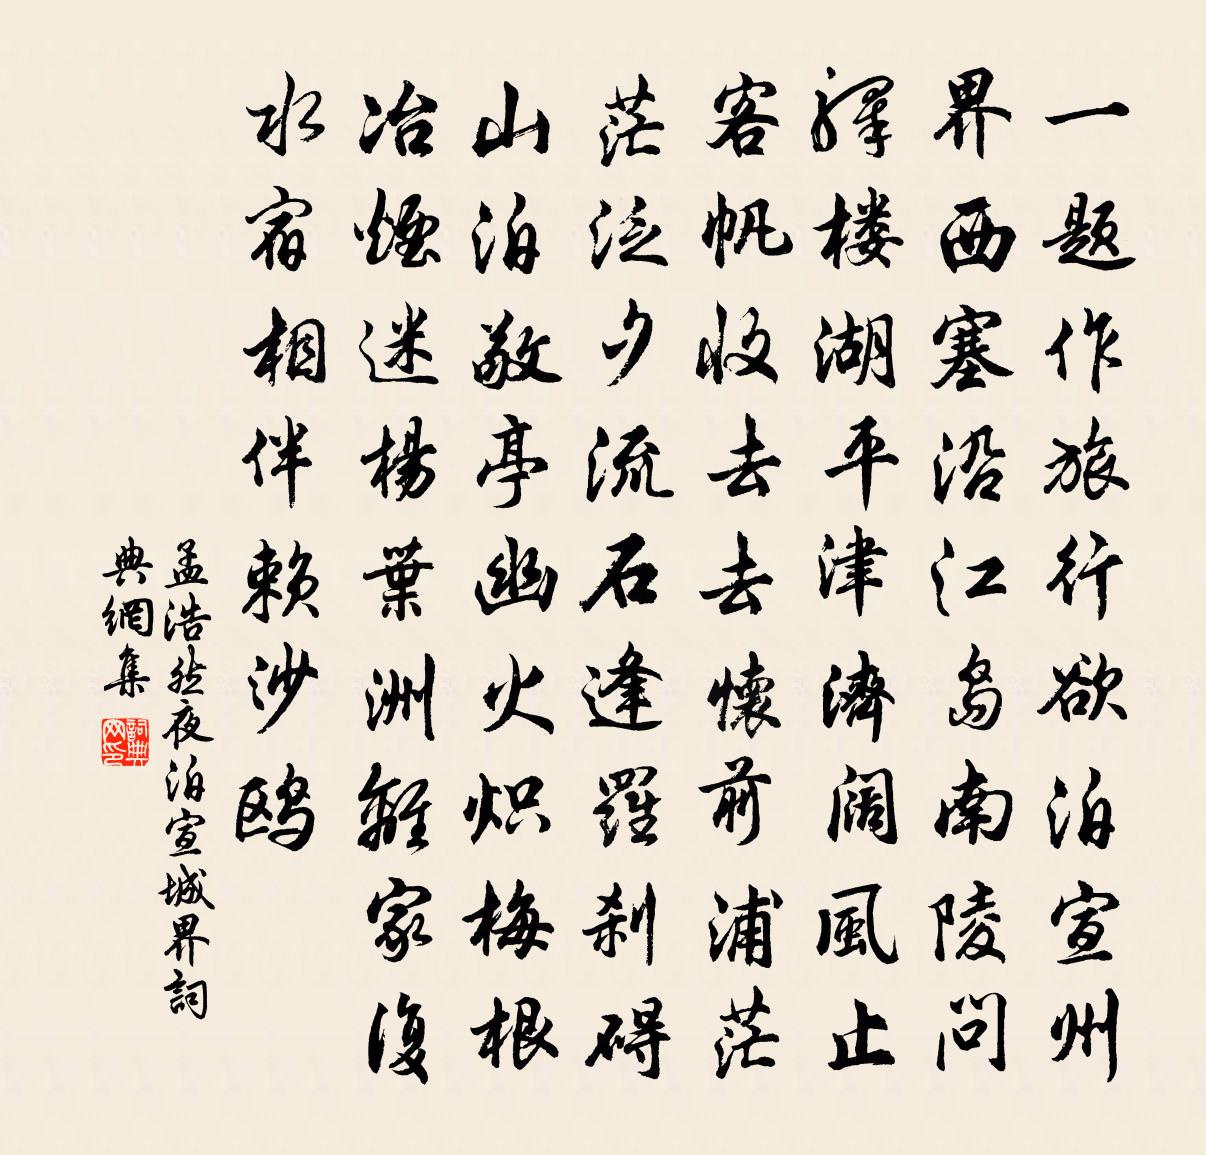 一题作旅行欲泊宣州
界西塞沿江島南陵问
驛楼湖平津濟阔風止
客帆收去去懷前浦茫
茫泛夕流石逢羅刹碍
山泊敬亭幽火炽梅根
冶煙迷楊葉洲離家復
水宿相伴赖沙鸥
孟浩然夜泊宣城界詞
典網集
詞典
网印